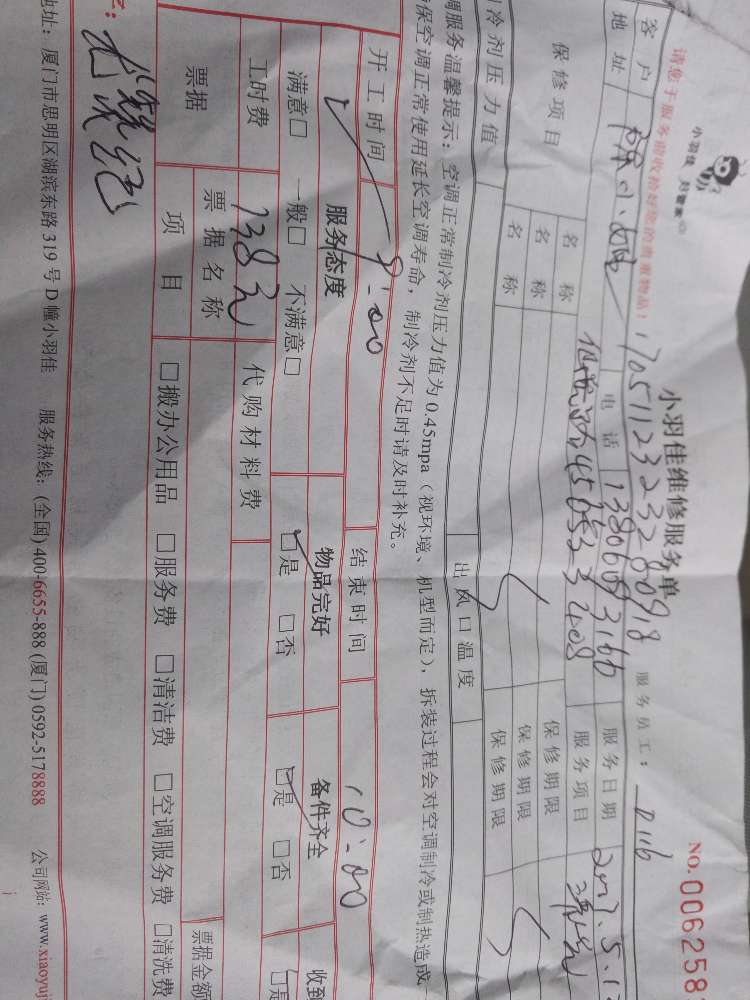 小羽佳 归管家
小羽佳维修服务单
NO. 006258
请您于服务前收拾好您的贵重物品!
1705112323280918
服务员工: D116
客户
电话 13806093166
服务日期 2017.5.1
地址
服务项目
保修项目
名称
保修期限
名称
保修期限
名称
保修期限
制冷剂压力值
出风口温度
调服务温馨提示:空调正常制冷剂压力值为0.45mpa(视环境、机型而定),拆装过程会对空调制冷或制热造成
保空调正常使用延长空调寿命,制冷剂不足时请及时补充。
开工时间 9:00 结束时间 10:00
服务态度 物品完好 备件齐全 收到
满意□ 一般□ 不满意□ □是 □否 □是 □否 □是
工时费 138元 代购材料费
票据 票据名称 票据金额
项目 □搬办公用品 □服务费 □清洁费 □空调服务费 □清洗费
地址:厦门市思明区湖滨东路319号D幢小羽佳 服务热线:(全国)400-6655-888(厦门)0592-5178888 公司网站:www.xiaoyuj